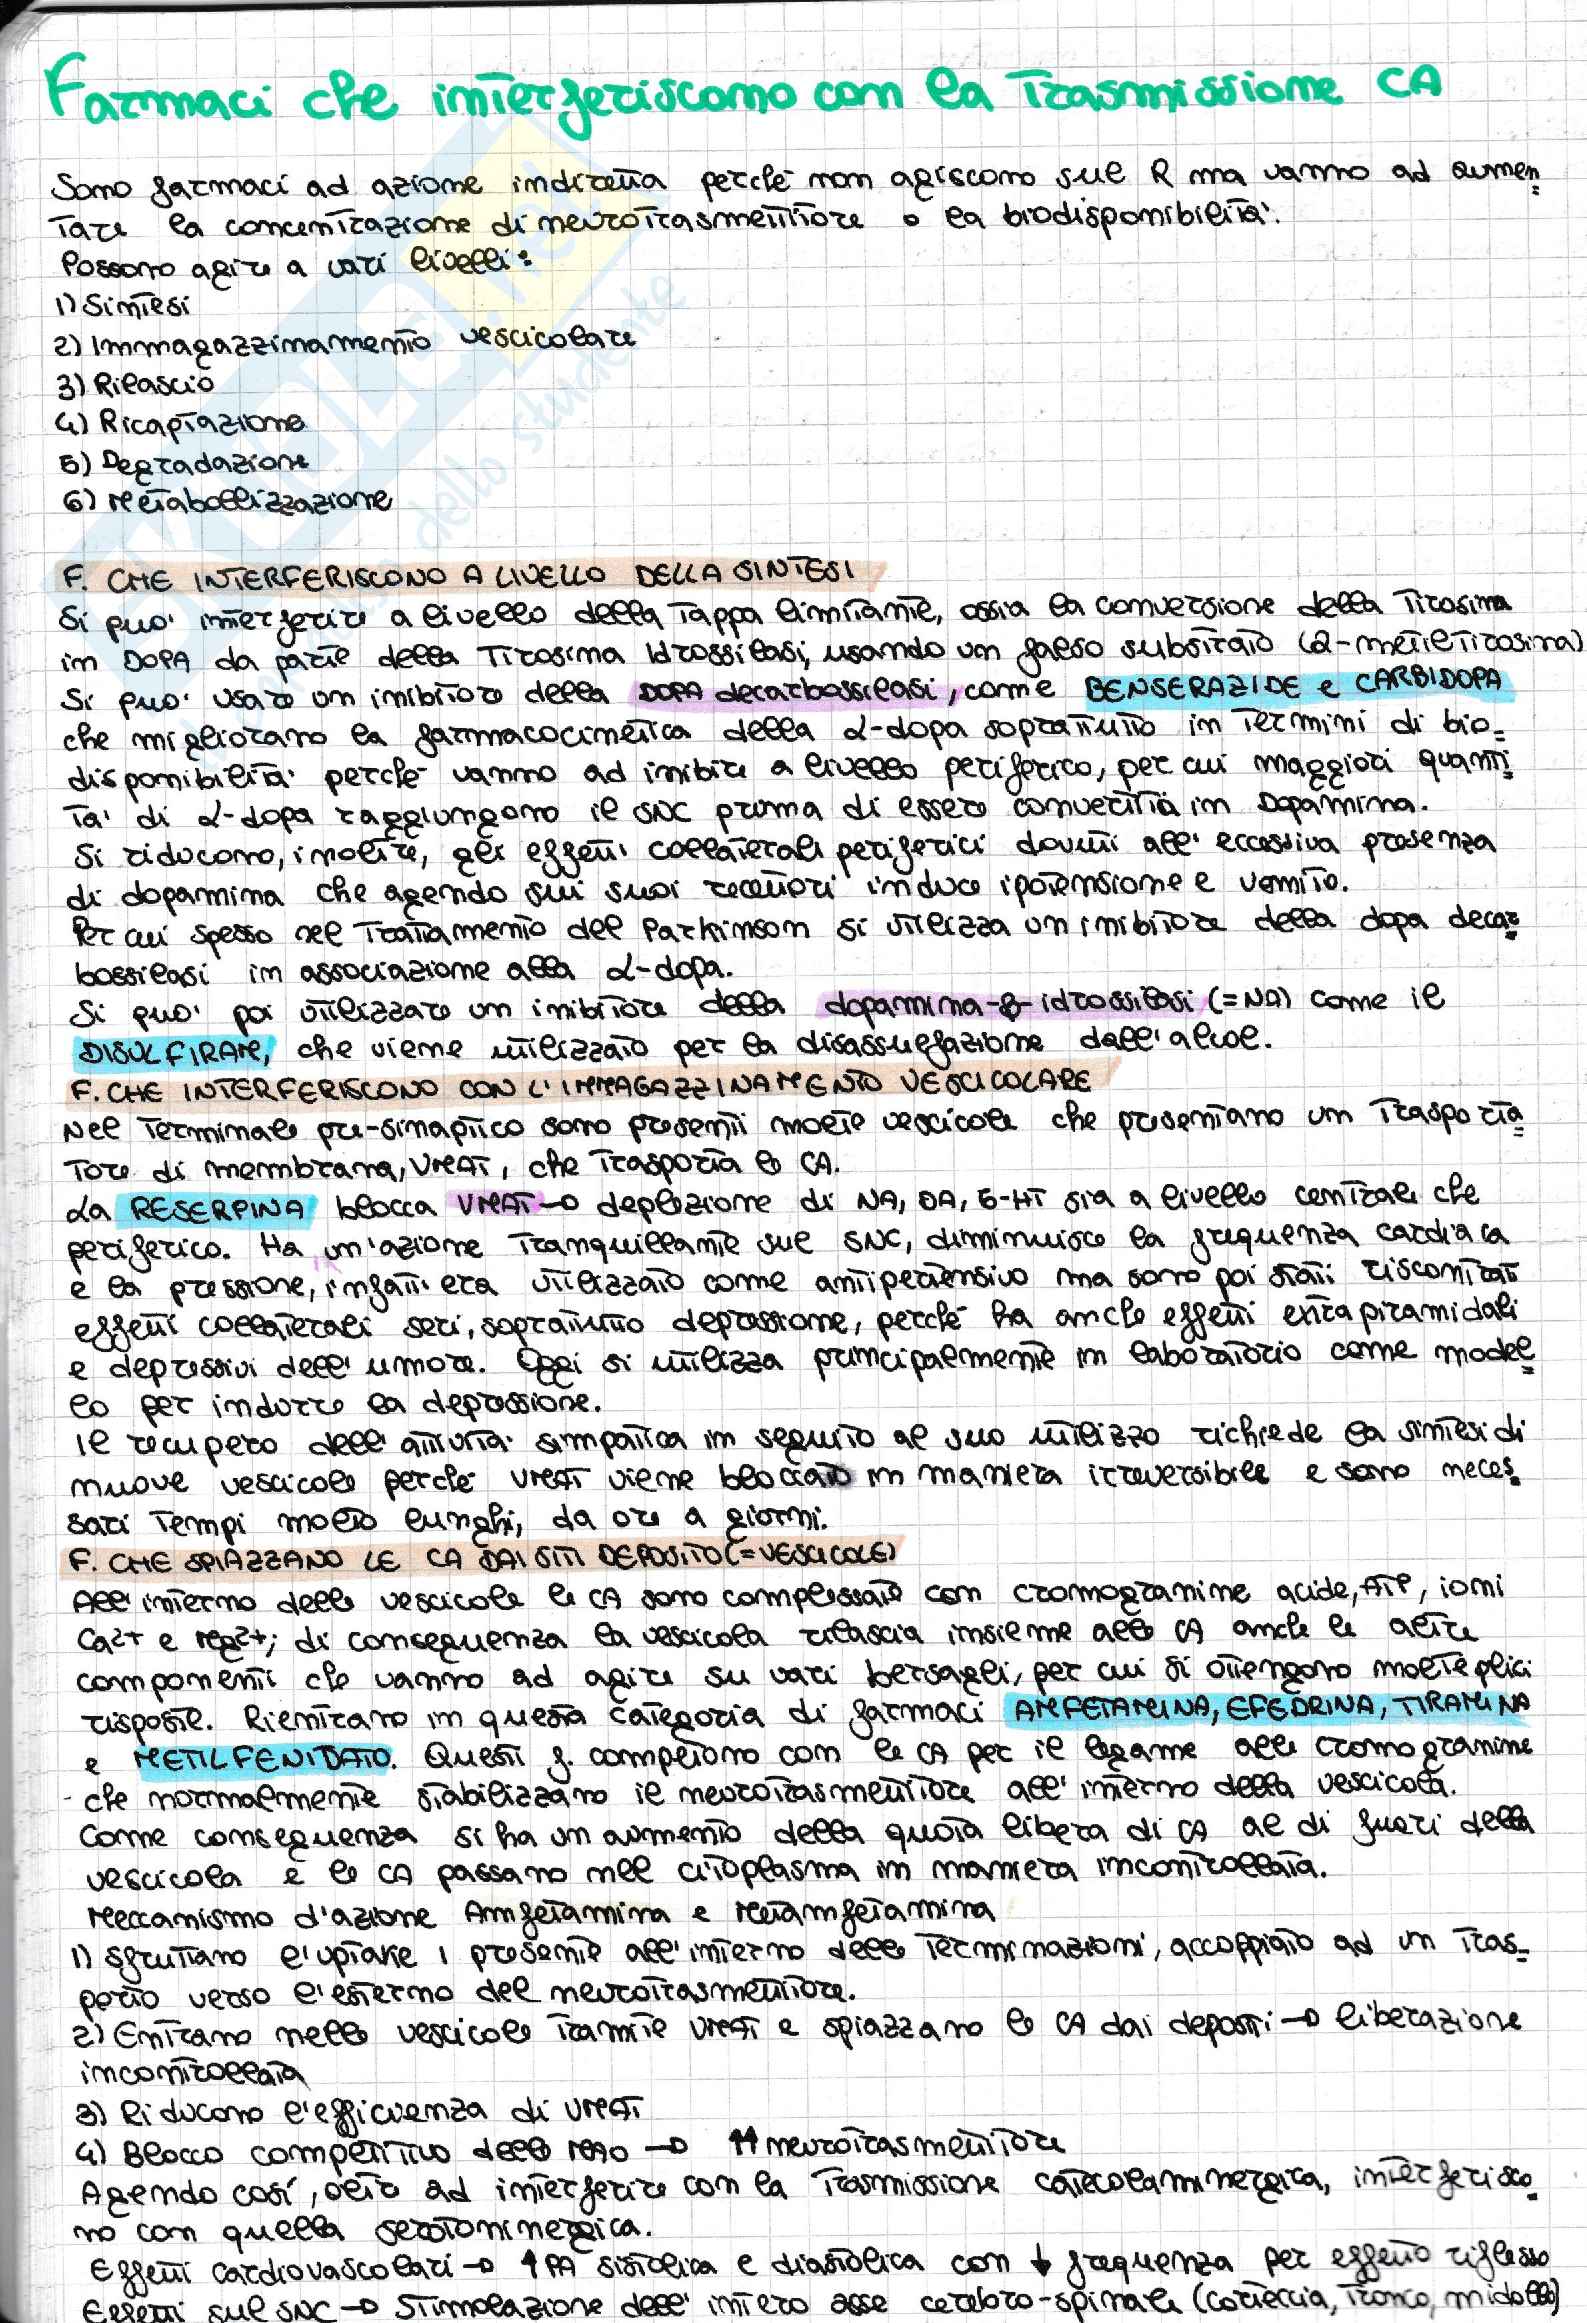 Farmaci che interferiscono con la Trasmissione CA
Sono farmaci ad azione indiretta perchè non agiscono sul R ma vanno ad aumen=
tare la concentrazione di neurotrasmettitore o la biodisponibilità.
Possono agire a vari livelli:
1) Sintesi
2) Immagazzinamento vescicolare
3) Rilascio
4) Ricaptazione
5) Degradazione
6) Metabolizzazione
F. CHE INTERFERISCONO A LIVELLO DELLA SINTESI
Si può interferire a livello della tappa limitante, ossia la conversione della Tirosina
in DOPA da parte della Tirosina Idrossilasi, usando un falso substrato (α-metiltirosina)
Si può usare un inibitore della DOPA decarbossilasi, come BENSERAZIDE e CARBIDOPA
che migliorano la farmacocinetica della α-dopa soprattutto in termini di bio=
disponibilità perchè vanno ad inibire a livello periferico, per cui maggiori quanti=
tà di α-dopa raggiungono il SNC prima di essere convertita in Dopamina.
Si riducono, inoltre, gli effetti collaterali periferici dovuti all'eccessiva presenza
di dopamina che agendo sui suoi recettori induce ipotensione e vomito.
Per cui spesso nel Trattamento del Parkinson si utilizza un inibitore della dopa decar=
bossilasi in associazione alla α-dopa.
Si può poi utilizzare un inibitore della dopamina-β-idrossilasi (=NA) come il
DISULFIRAM, che viene utilizzato per la disassuefazione dall'alcol.
F. CHE INTERFERISCONO CON L'IMMAGAZZINAMENTO VESCICOLARE
Nel Terminale pre-sinaptico sono presenti molte vescicole che presentano un Trasporta=
tore di membrana, VMAT, che trasporta le CA.
La RESERPINA blocca VMAT → deplezione di NA, DA, 5-HT sia a livello centrale che
periferico. Ha un'azione tranquillante sul SNC, diminuisce la frequenza cardiaca
e la pressione, infatti era utilizzato come antipertensivo ma sono poi stati riscontrati
effetti collaterali seri, soprattutto depressione, perchè ha anche effetti extrapiramidali
e depressivi dell'umore. Oggi si utilizza principalmente in laboratorio come model=
lo per indurre la depressione.
Il recupero dell'attività simpatica in seguito al suo utilizzo richiede la sintesi di
nuove vescicole perchè VMAT viene bloccato in maniera irreversibile e sono neces=
sari tempi molto lunghi, da ore a giorni.
F. CHE SPIAZZANO LE CA DAI SITI DEPOSITO (=VESCICOLE)
All'interno delle vescicole le CA sono complessate con cromogranine acide, ATP, ioni
Ca2+ e Mg2+; di conseguenza la vescicola rilascia insieme alle CA anche le altre
componenti che vanno ad agire su vari bersagli, per cui si ottengono molteplici
risposte. Rientrano in questa categoria di farmaci AMFETAMINA, EFEDRINA, TIRAMINA
e METILFENIDATO. Questi f. competono con le CA per il legame alle cromogranine
che normalmente stabilizzano il neurotrasmettitore all'interno della vescicola.
Come conseguenza si ha un aumento della quota libera di CA al di fuori della
vescicola e le CA passano nel citoplasma in maniera incontrollata.
Meccanismo d'azione Amfetamina e Metamfetamina
1) Sfruttano l'uptake 1 presente all'interno delle Terminazioni, accoppiato ad un tras=
porto verso l'esterno del neurotrasmettitore.
2) Entrano nelle vescicole tramite VMAT e spiazzano le CA dai depositi → liberazione
incontrollata
3) Riducono l'efficienza di VMAT
4) Blocco competitivo delle MAO → ↑↑ neurotrasmettitore
Agendo così, oltre ad interferire con la Trasmissione catecolaminergica, interferisco=
no con quella serotoninergica.
Effetti cardiovascolari → ↑ PA sistolica e diastolica con ↓ frequenza per effetto riflesso
Effetti sul SNC → Stimolazione dell'intero asse cerebro-spinale (corteccia, tronco, midollo)